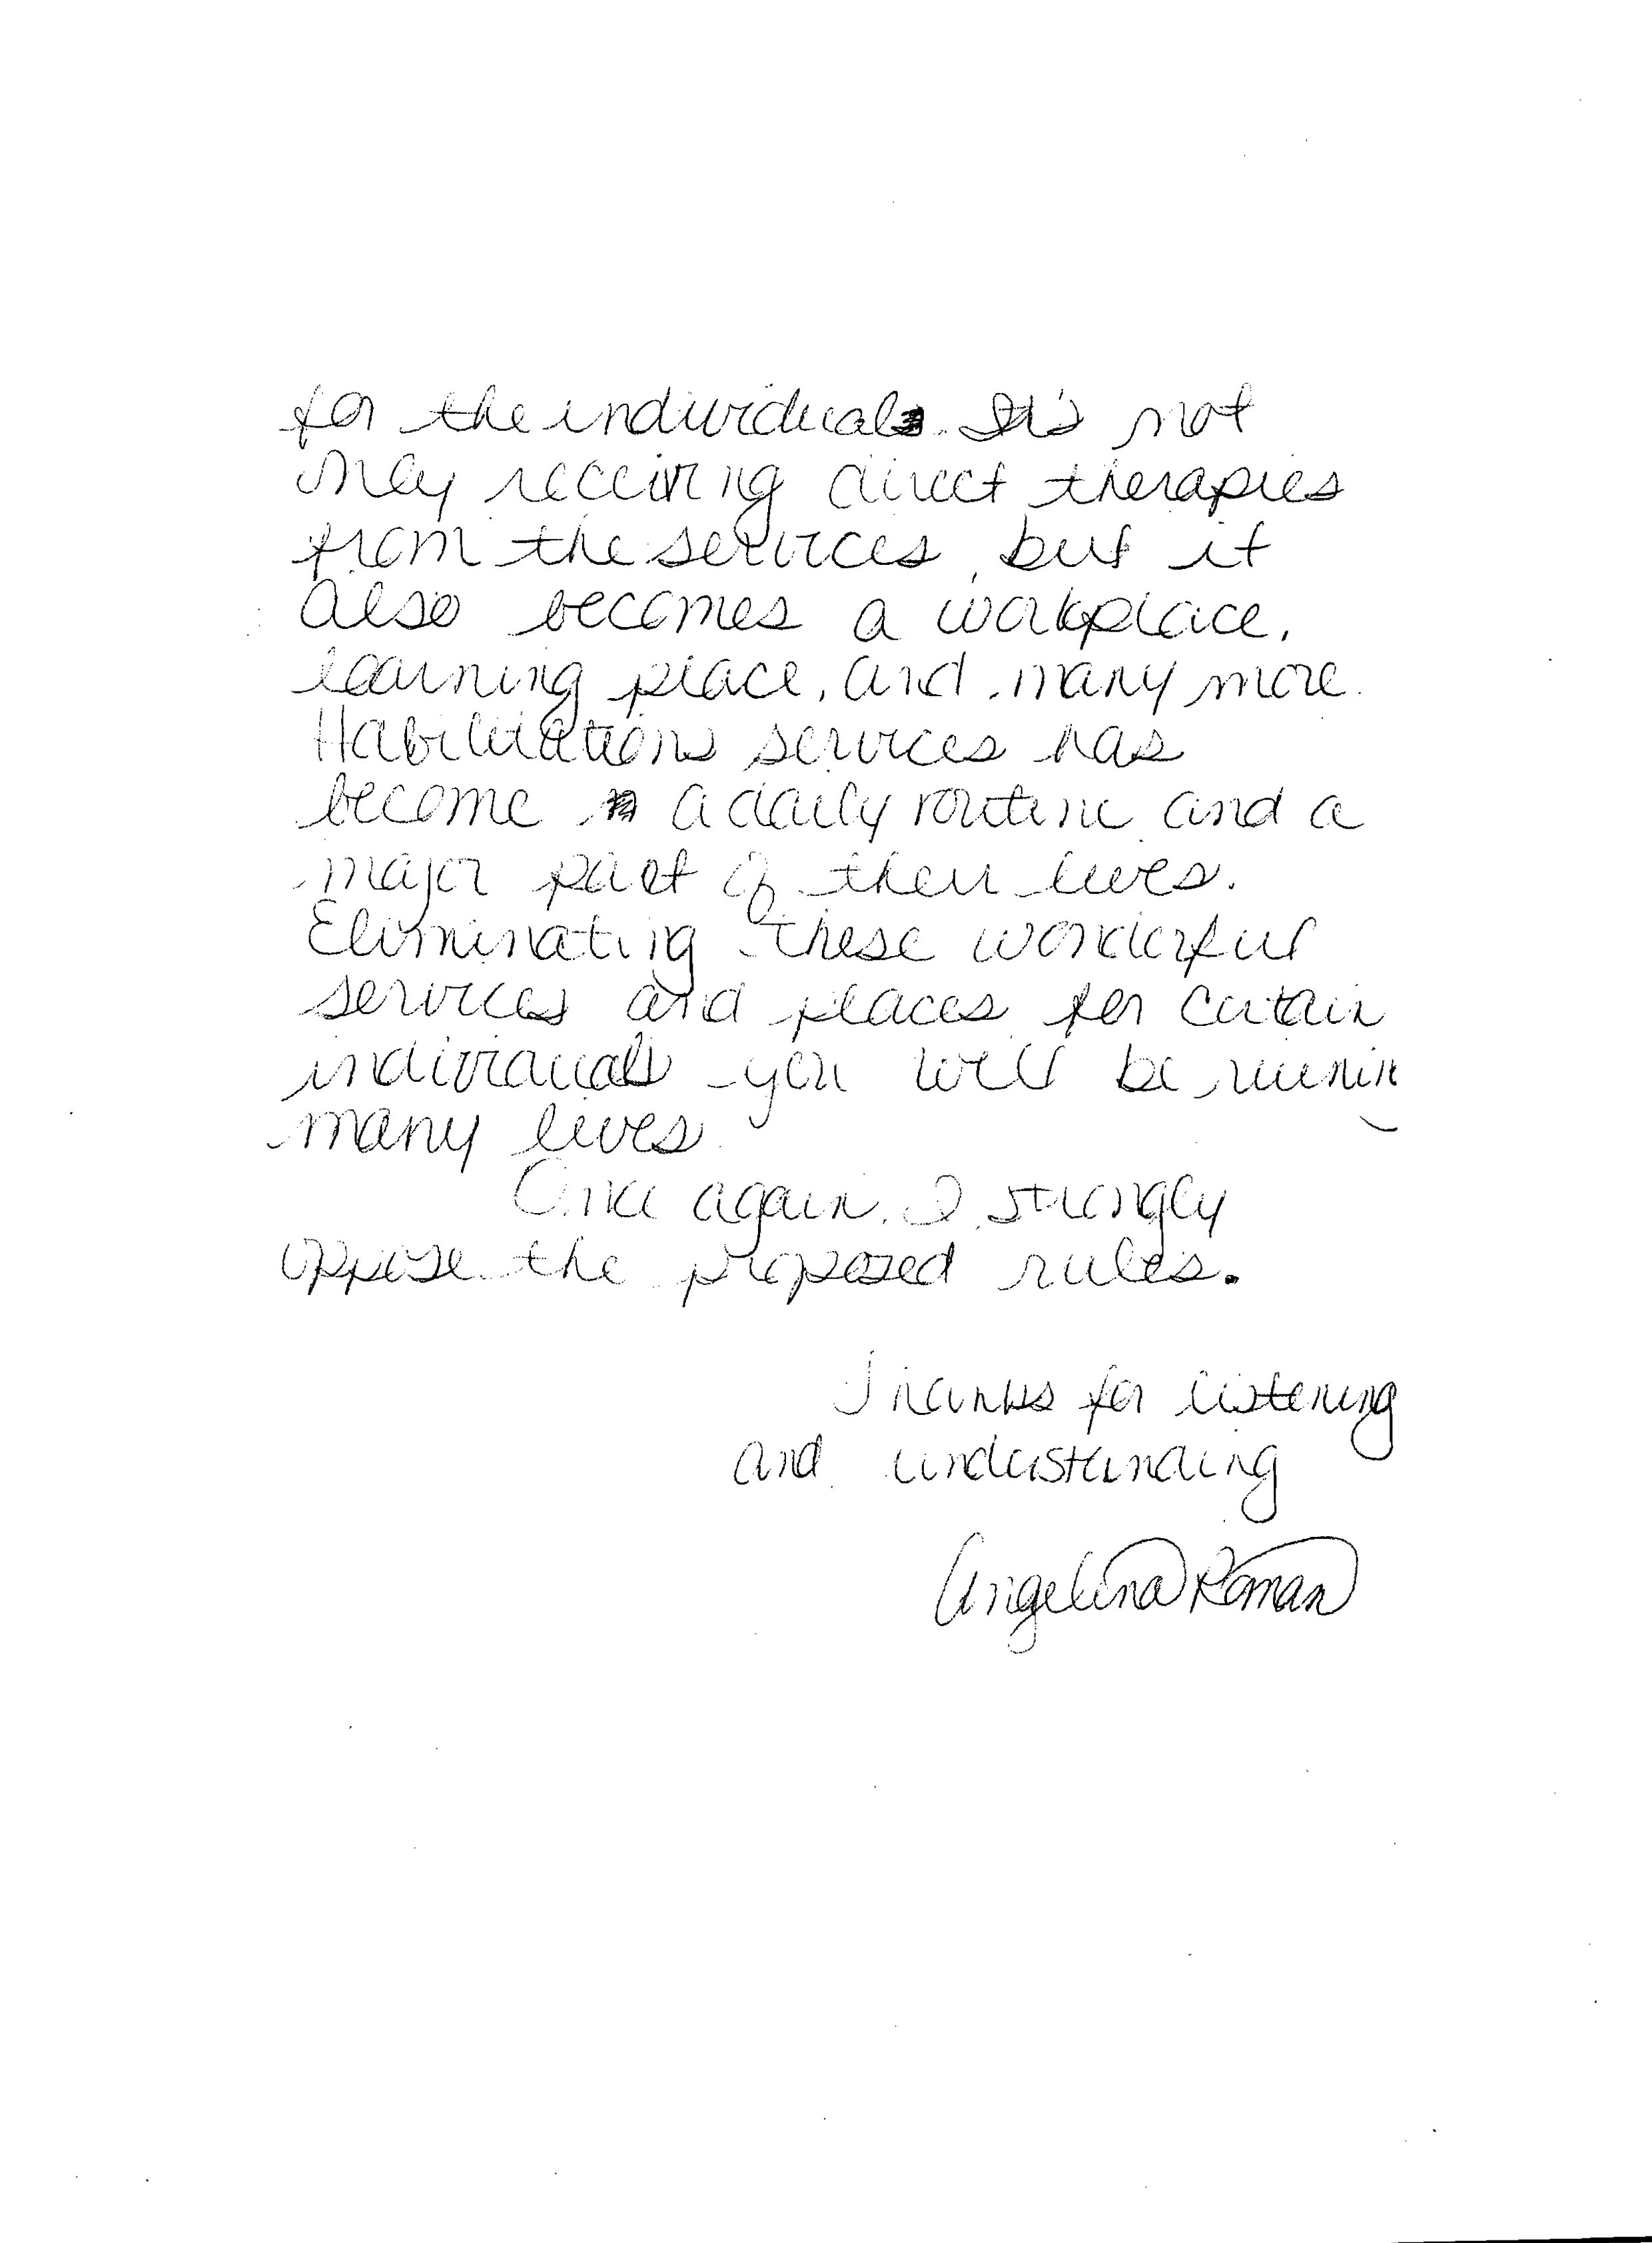 for the individuals. It's not
only receiving direct therapies
from the services, but it
also becomes a workplace,
learning place, and many more.
Habilitations services has
become a daily routine and a
major part of their lives.
Eliminating these wonderful
services and places for certain
individuals you will be
many lives
Once again, I strongly
oppose the proposed rules.
Thanks for listening
and understanding
Angelina Roman